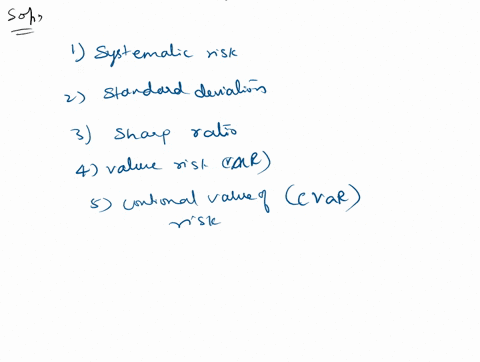 Soln,
1) Systematic risk
2) Standard deviations
3) Sharp ratio
4) value risk (VAR)
5) contional value of (CVaR)
risk